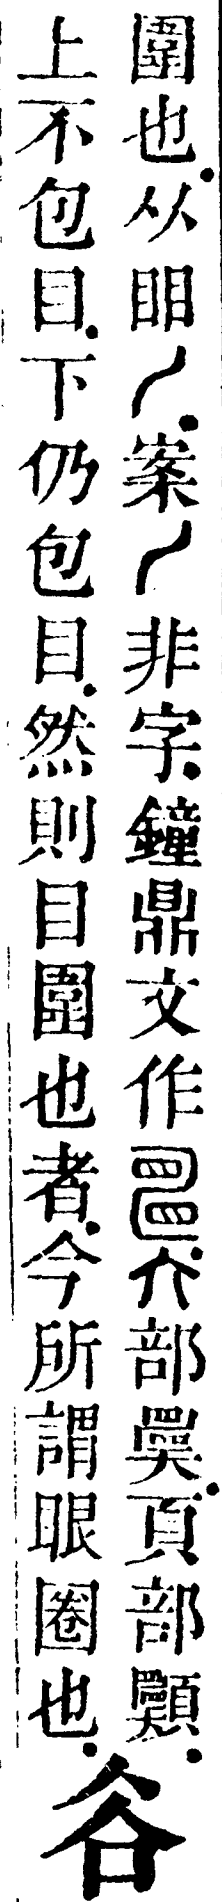 圍也从䀠𠂆案𠂆非字鐘鼎文作亣部奰頁部
上不包目下仍包目然則目圍也者今所謂眼圈也
谷